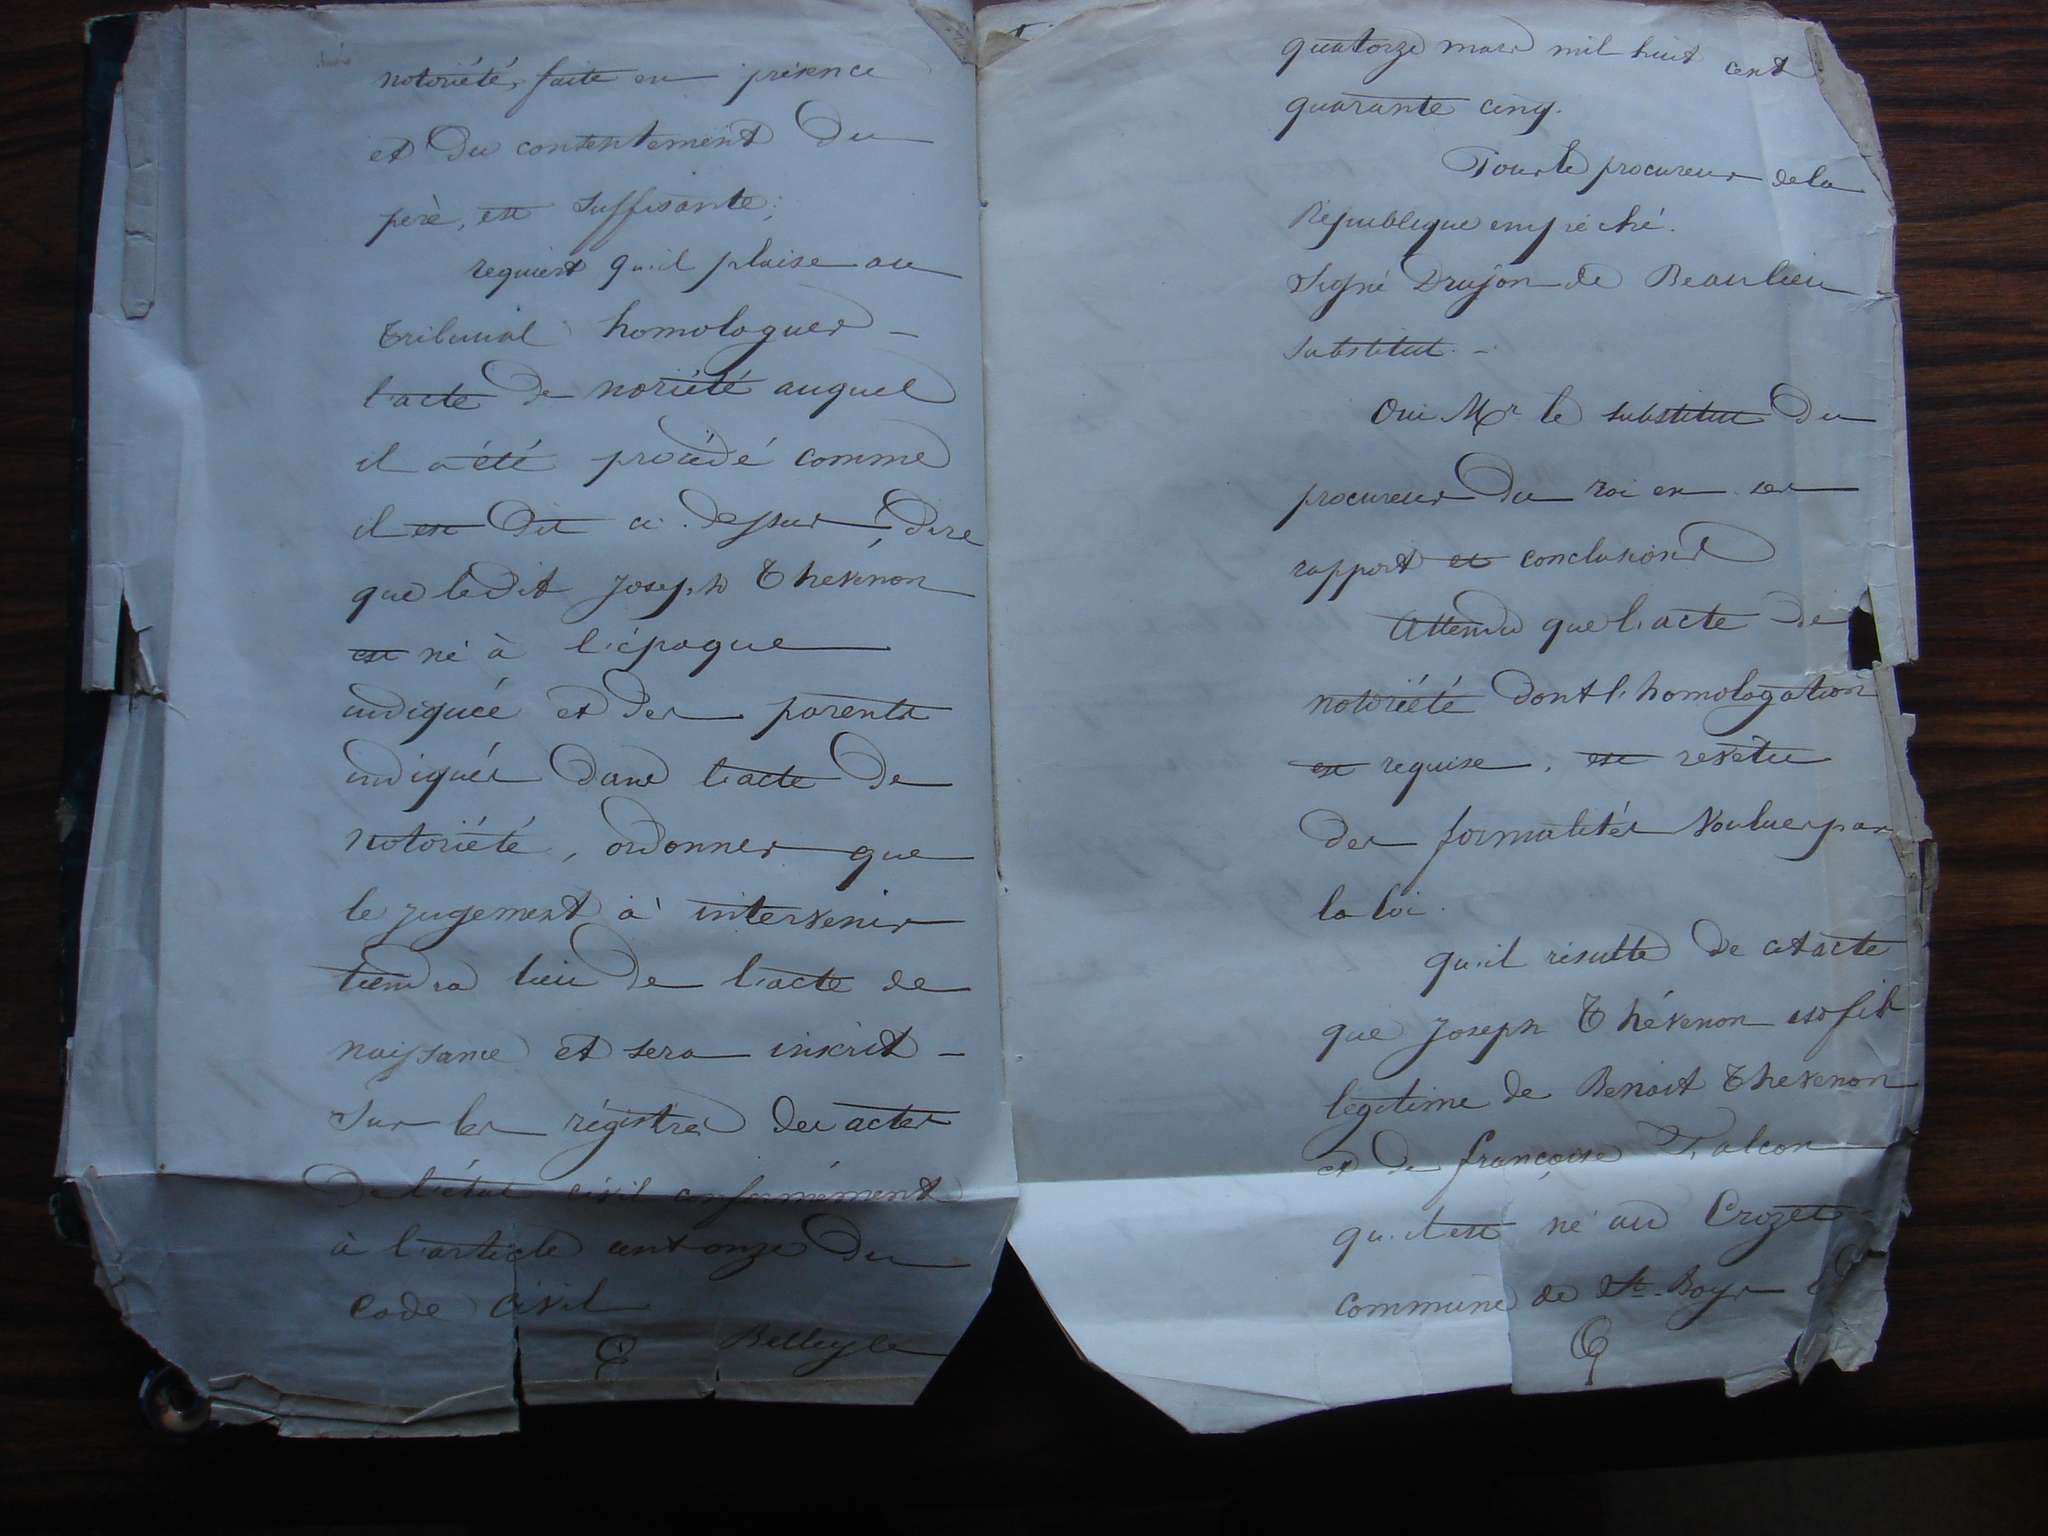 notoriété, faite en présence
et du contentement du
père, est suffisante;
requiert qu'il plaise au
tribunal homologuer –
l'acte de noriété auquel
il a été procédé comme
il est dit ci-dessus, dire
que ledit Joseph Thévénon
est né à l'époque
indiquée et des parents
indiqués dans l'acte de
notoriété, ordonner que
le jugement à intervenir
tiendra lieu de l'acte de
naissance et sera inscrit –
sur les régistres des actes
de l'état civil conformément
à l'article cent onze du
code civil
quatorze mars mil huit cent
quarante cinq.
Pour le procureur de la
République empêché.
Signé Drujon de Beaulieu
substitut. –
Oui Mr le substitut du
procureur du roi en ses
rapport et conclusions
Attendu que l'acte de
notoriété dont l'homologation
est requise, est revetu
des formalités voulues par
la loi.
qu'il résulte de cet acte
que Joseph Thévenon est fils
légitime de Benoit Thevenon
et de françoise Falcon
qu'il est né au Crozet –
commune de St. Boys